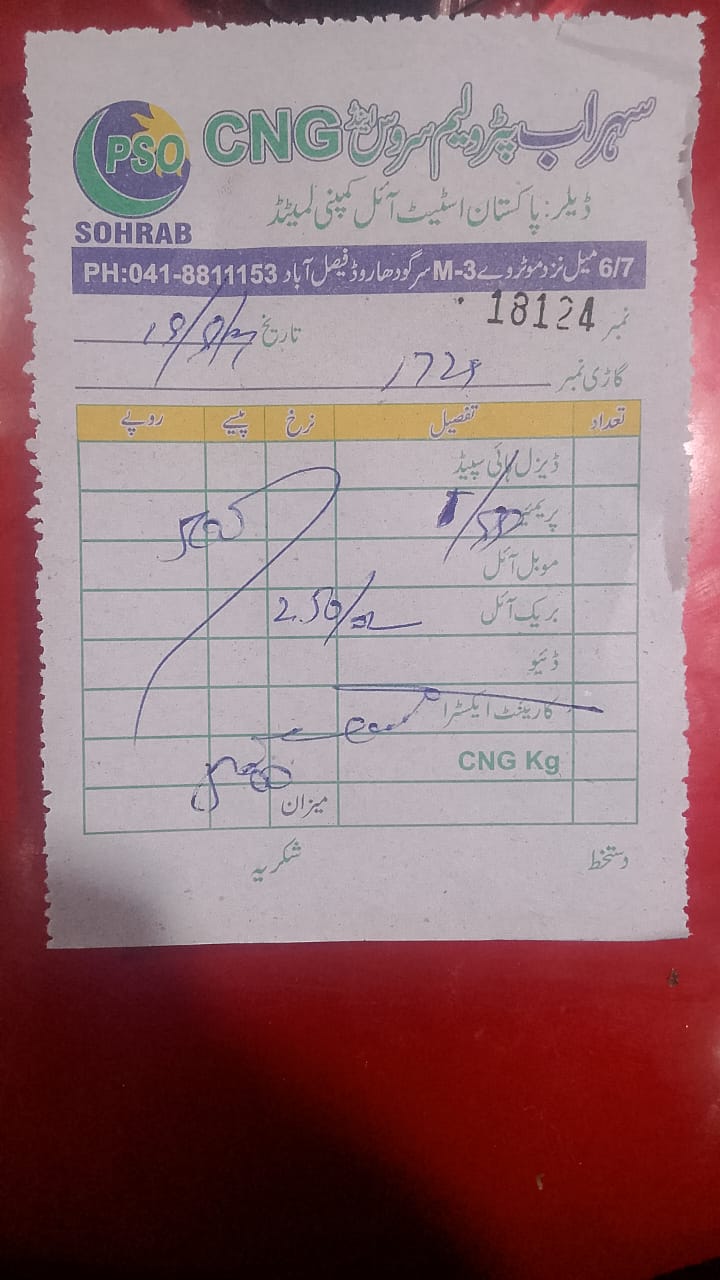 سہراب پٹرولیم سروس اینڈ CNG
PSO
SOHRAB
ڈیلر: پاکستان اسٹیٹ آئل کمپنی لمیٹڈ
6/7 میل نزد موٹروے M-3 سرگودھا روڈ فیصل آباد PH:041-8811153
نمبر 18124 تاریخ
گاڑی نمبر 1729
تعداد تفصیل نرخ پیسے روپے
ڈیزل ہائی سپیڈ
پریمئیر
موبل آئل
بریک آئل 2.50/
ڈئیو
کارینٹ ایکسٹرا
CNG Kg
میزان
دستخط شکریہ